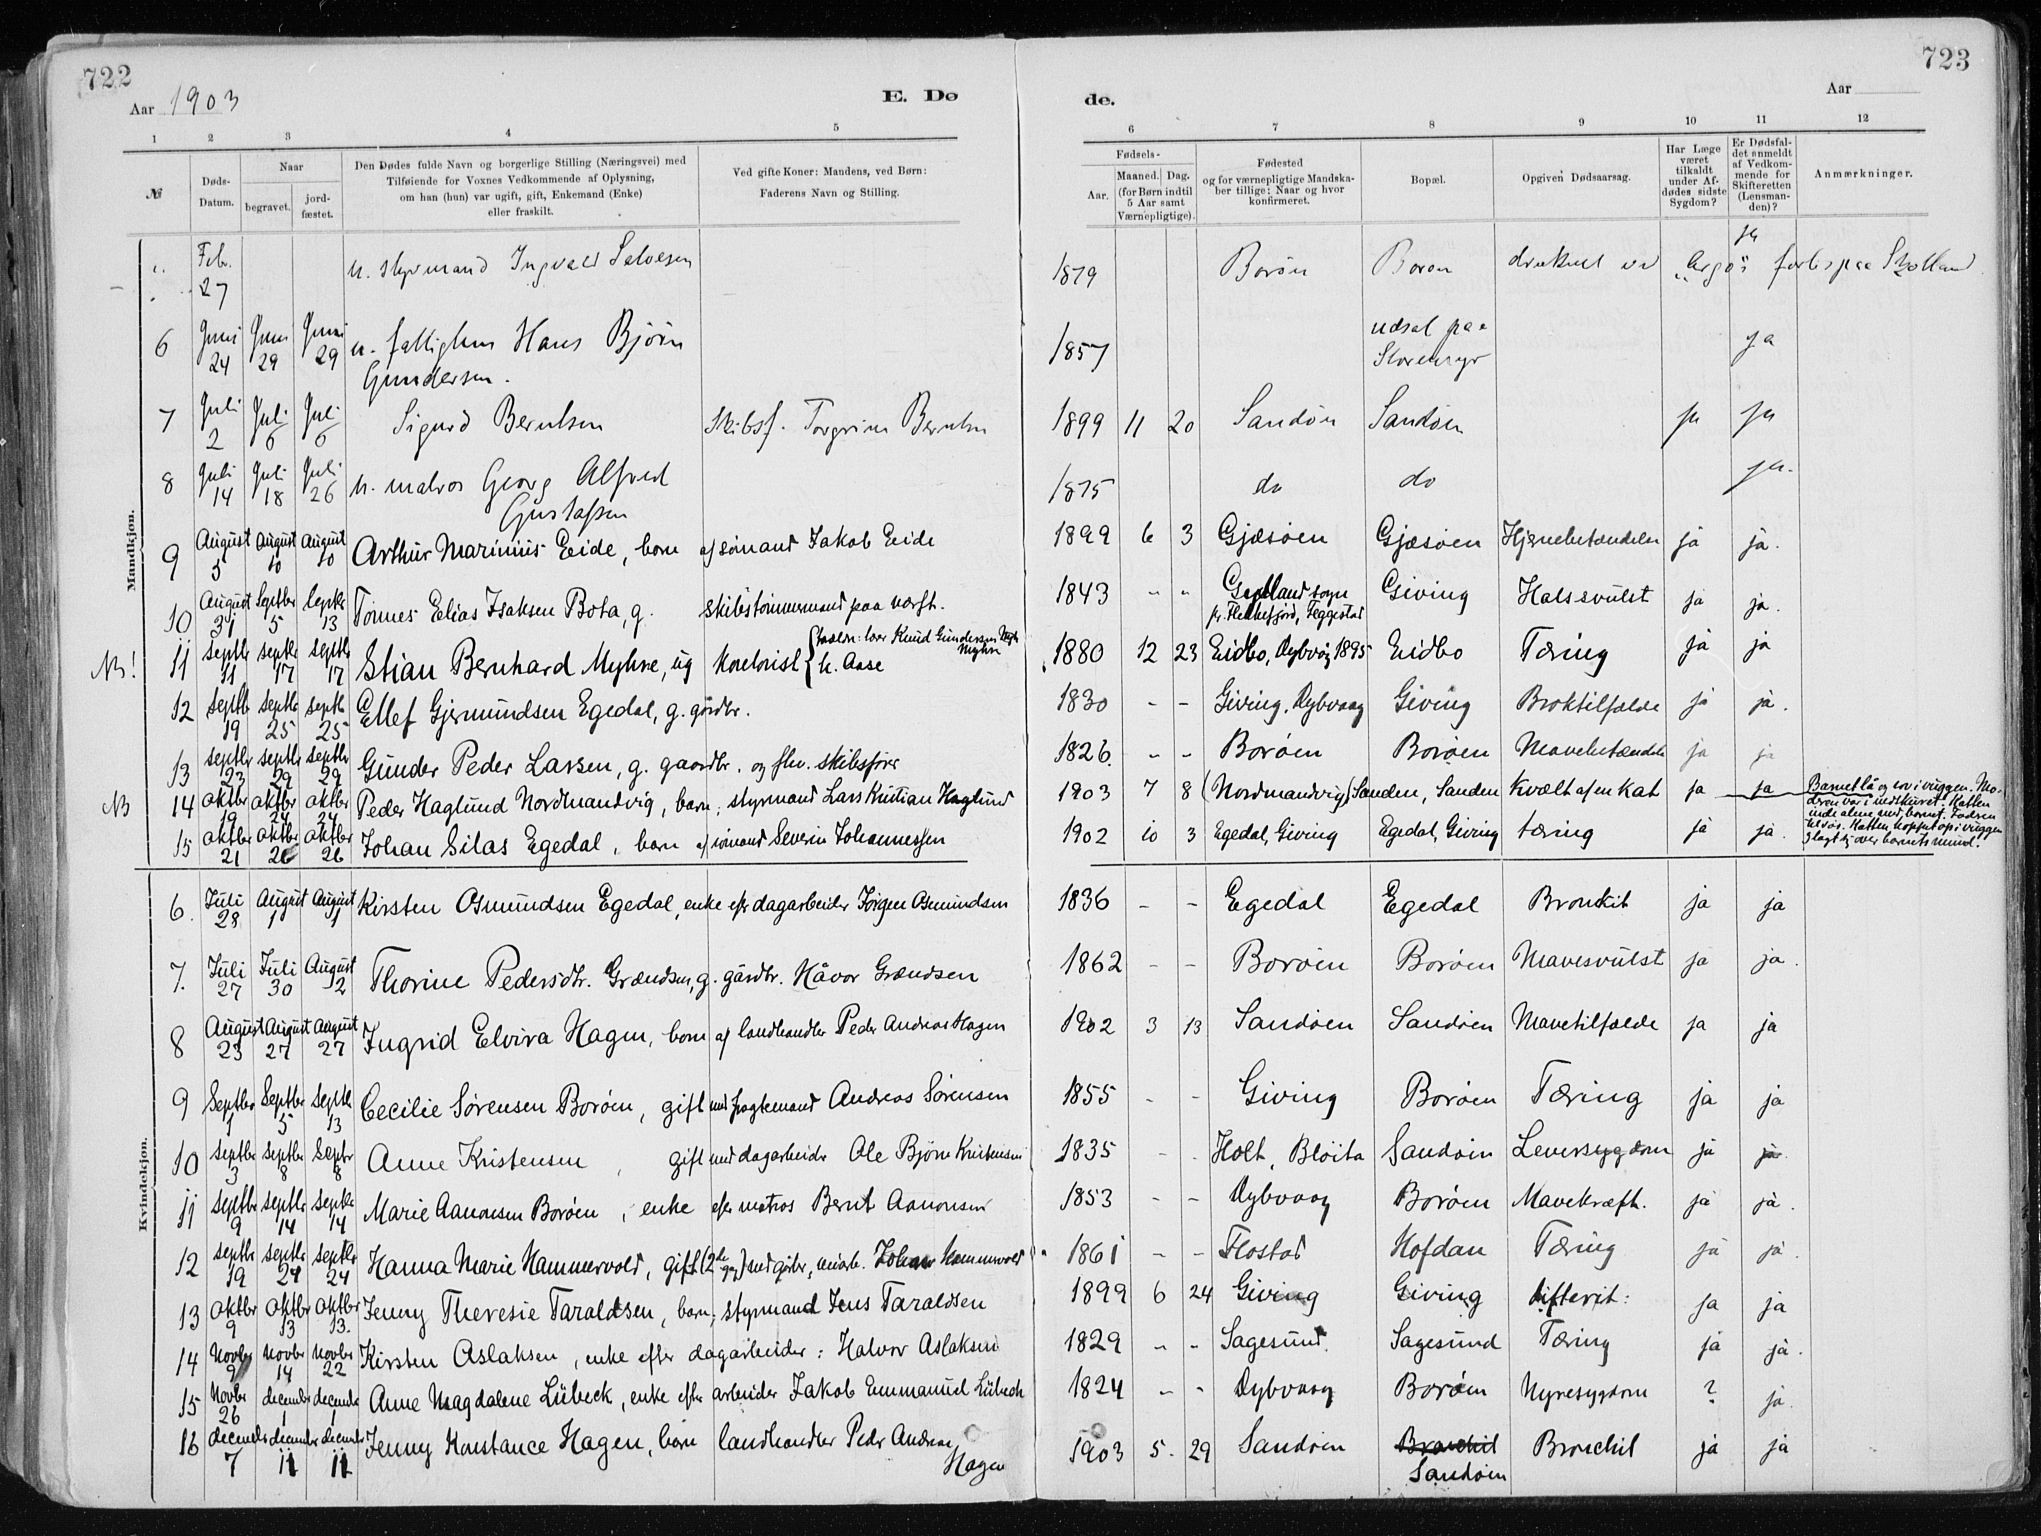 722
Aar 1903
E. Dø
1 2 3 4 5
№
Døds-Datum.
Naar
begravet.
jord-fæstet.
Den Dødes fulde Navn og borgerlige Stilling (Næringsvei) med
Tilføiende for Voxnes Vedkommende af Oplysning,
om han (hun) var ugift, gift, Enkemand (Enke)
eller fraskilt.
Ved gifte Koner: Mandens, ved Børn:
Faderens Navn og Stilling.
723
de.
Aar
6 7 8 9 10 11 12
Fødsels-
Aar.
Maaned. Dag.
(for Børn indtil
5 Aar samt
Værnepligtige).
Fødested
og for værnepligtige Mandska-
ber tillige: Naar og hvor
konfirmeret.
Bopæl.
Opgiven Dødsaarsag.
Har Læge
været
tilkaldt
under Af-
dødes sidste
Sygdom?
Er Dødsfal-
det anmeldt
af Vedkom-
mende for
Skifteretten
(Lensman-
den)?
Anmærkninger.
Mandkjøn.
Feb. 27 u. styrmand Ingvald Salvesen 1879 Borøn Borøn druknet ved "Argo"s forlis paa Skotland ja
6 Juni 24 Juni 29 Juni 29 u. fattiglem Hans Bjørn Gundersen. 1857 udsat paa ja
7 Juli 2 Juli 6 Juli 6 Sigurd Berntsen Skibsf. Torgrim Berntsen 1899 11 20 Sandøn Sandøen ja ja
8 Juli 14 Juli 18 Juli 26 u. matros Georg Alfred Gustafsen 1875 do do ja.
9 August 5 August 10 August 10 Arthur Marinius Eide, barn af sømand Jakob Eide 1899 6 3 Gjæsøen Gjæsøen Hjernebetændelse ja ja.
10 August 31 Septbr 5 Septbr 13 Tønnes Elias Isaksen Bota, g. skibstømmermand paa værft. 1843 - - sogn pr. Flekkefjord, Feggestad Giving Halssvulst ja ja.
NB! 11 septbr 11 septbr 17 septbr 17 Stian Bernhard Myhre, ug Kontorist { faderen: loer Knud Gundersen Myhre h. Aase 1880 12 23 Eidbo, Dybvåg 1895 Eidbo Tæring ja ja
12 septbr 19 septbr 25 septbr 25 Ellef Gjermundsen Egedal, g. gårdbr. 1830 - - Giving, Dybvaag Giving Broktilfælde ja ja.
13 septbr 23 septbr 29 septbr 29 Gunder Peder Larsen, g. gaardbr. og fhv. skibsfører 1826. - - Borøen Borøen Mavebetændelse ja ja
NB 14 oktbr 19 oktbr 24 oktbr 24 Peder Haglund Nordmandvig, barn; styrmand Lars Kristian Haglund 1903 7 8 (Nordmandvig) Sanden, Sanden Kvælt af en Kat ja ja Barnet lå og sov i vuggen. Mo-
deren var i vedskuret. Katten
inde alene med barnet. Faderen
tilsjøs. Katten hoppet op i vuggen
& lagt sig over barnets mund.
15 oktbr 21 oktbr 26 oktbr 26 Johan Silas Egedal, barn af sømand Severin Johannessen 1902 10 3 Egedal, Giving Egedal, Giving tæring ja ja.
Kvindekjøn.
6. Juli 28 August 1 August 1 Kirsten Osmundsen Egedal, enke efr dagarbeider Jørgen Osmundsen 1836 - - Egedal Egedal Bronkit ja ja
7. Juli 27 Juli 30 August 2 Thorine Pedersdtr. Grændsen, g. gårdbr. Håvor Grændsen 1862 - - Borøen Borøen Mavesvulst ja ja.
8 August 23 August 27 August 27 Ingrid Elvira Hagen, barn af landhandler Peder Andreas Hagen 1902 3 13 Sandøen Sandøen Mavetilfælde ja ja
9 Septbr 1 Septbr 5 Septbr 13 Cecilie Sørensen Borøen, gift med fragtemand Andreas Sørensen 1855 - - Giving Borøen Tæring ja ja
10 septbr 3 septbr 8 Septbr 8 Anne Kristensen, gift med dagarbeider Ole Bjørn Kristensen 1835 - - Holt, Bløita Sandøen Leversygdom ja ja.
11 septbr 9 septbr 14 septbr 14 Marie Aanonsen Borøen, enke efter matros Bernt Aanonsen 1853 - - Dybvaag Borøen Mavekræft. ja ja.
12 septbr 19 septbr 24 septbr 24 Hanna Marie Hammervold, gift (2den g.) med gårbr, Johan Hammervold 1861 - - Flostad Hofdan Tæring ja ja.
13 oktbr 9 oktbr 13 oktbr 13. Jenny Theresie Taraldsen, barn; styrmand Jens Taraldsen 1899 6 24 Giving Giving difterit: ja ja
14 Novbr 9 novbr 14 novbr 22 Kirsten Aslaksen, enke efter dagarbeider: Halvor Aslaksen 1829 - - Sagesund. Sagesund Tæring ja ja.
15 Novbr 26 december 1 december 1 Anne Magdalene Lübeck, enke efter arbeider Jakob Emmanuel Lübeck 1824 - - Dybvaag Borøen Nyresygdom ? ja.
16 december 7 december 11 december 11 Jenny Konstance Hagen, barn landhandler Peder Andreas Hagen 1903 5. 29 Sandøen Bronchit Sandøen Bronchit ja ja